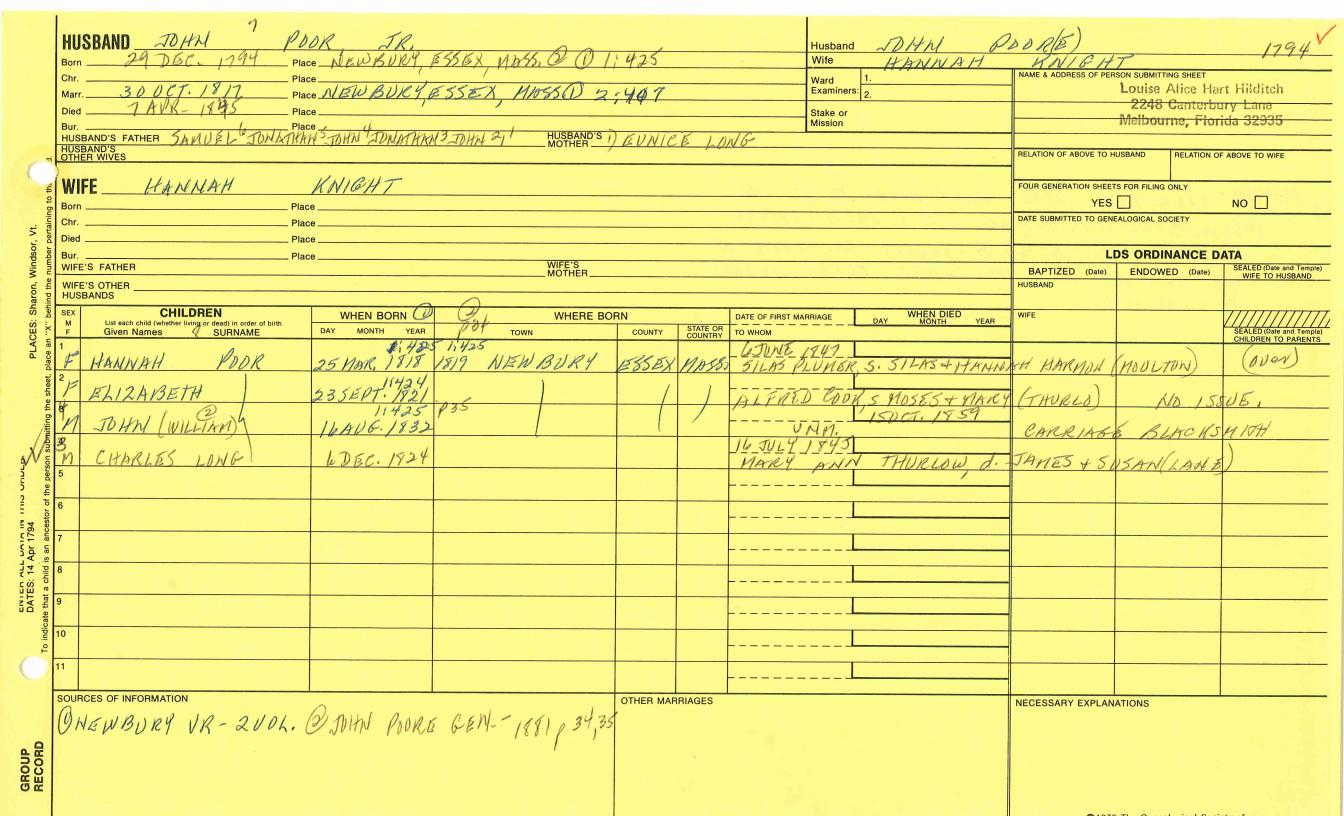 7
HUSBAND JOHN POOR JR.
Born 29 DEC. 1794 Place NEWBURY, ESSEX, MASS. ② ① 1:425
Chr. Place
Marr. 30 OCT. 1817 Place NEWBURY, ESSEX, MASS ① 2:407
Died 7 APR. 1845 Place
Bur. Place
HUSBAND'S FATHER SAMUEL⁶ JONATHAN⁵ JOHN⁴ JONATHAN³ JOHN 2, 1 HUSBAND'S MOTHER 1) EUNICE LONG
HUSBAND'S OTHER WIVES
Husband JOHN POOR(E) 1794
Wife HANNAH KNIGHT
Ward Examiners: 1.
2.
Stake or Mission
NAME & ADDRESS OF PERSON SUBMITTING SHEET
Louise Alice Hart Hilditch
2248 Canterbury Lane
Melbourne, Florida 32935
RELATION OF ABOVE TO HUSBAND RELATION OF ABOVE TO WIFE
FOUR GENERATION SHEETS FOR FILING ONLY
YES NO
DATE SUBMITTED TO GENEALOGICAL SOCIETY
WIFE HANNAH KNIGHT
Born Place
Chr. Place
Died Place
Bur. Place
WIFE'S FATHER WIFE'S MOTHER
WIFE'S OTHER HUSBANDS
LDS ORDINANCE DATA
BAPTIZED (Date) ENDOWED (Date) SEALED (Date and Temple) WIFE TO HUSBAND
HUSBAND
WIFE
SEALED (Date and Temple) CHILDREN TO PARENTS
SEX M F CHILDREN WHEN BORN ① ② p34 WHERE BORN DATE OF FIRST MARRIAGE WHEN DIED
List each child (whether living or dead) in order of birth.
Given Names 8 SURNAME DAY MONTH YEAR TOWN COUNTY STATE OR COUNTRY TO WHOM DAY MONTH YEAR
1 1:425 1:425 6 JUNE 1847
F HANNAH POOR 25 MAR. 1818 1819 NEWBURY ESSEX MASS. SILAS PLUMER, S. SILAS + HANNAH HARMON (MOULTON) (OVER)
2 1:424
F ELIZABETH 23 SEPT. 1821 ALFRED COOK, S MOSES + MARY (THURLO) NO ISSUE.
4 1:425 p35 15 OCT. 1859
M JOHN (WILLIAM) ② 16 AUG. 1832 UNM. CARRIAGE BLACKSMITH
3 16 JULY 1845
M CHARLES LONG 6 DEC. 1824 MARY ANN THURLOW, d. JAMES + SUSAN (LANE)
5
6
7
8
9
10
11
SOURCES OF INFORMATION OTHER MARRIAGES NECESSARY EXPLANATIONS
① NEWBURY VR - 2 VOL. ② JOHN POORE GEN. - 1881 p 34, 35
PLACES: Sharon, Windsor, Vt.
DATES: 14 Apr 1794
To indicate that a child is an ancestor of the person submitting the sheet, place an "X" behind the number pertaining to
GROUP RECORD